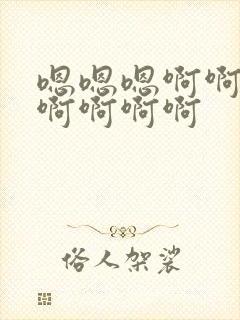 嗯嗯嗯啊啊
啊啊啊啊
俗人架裟